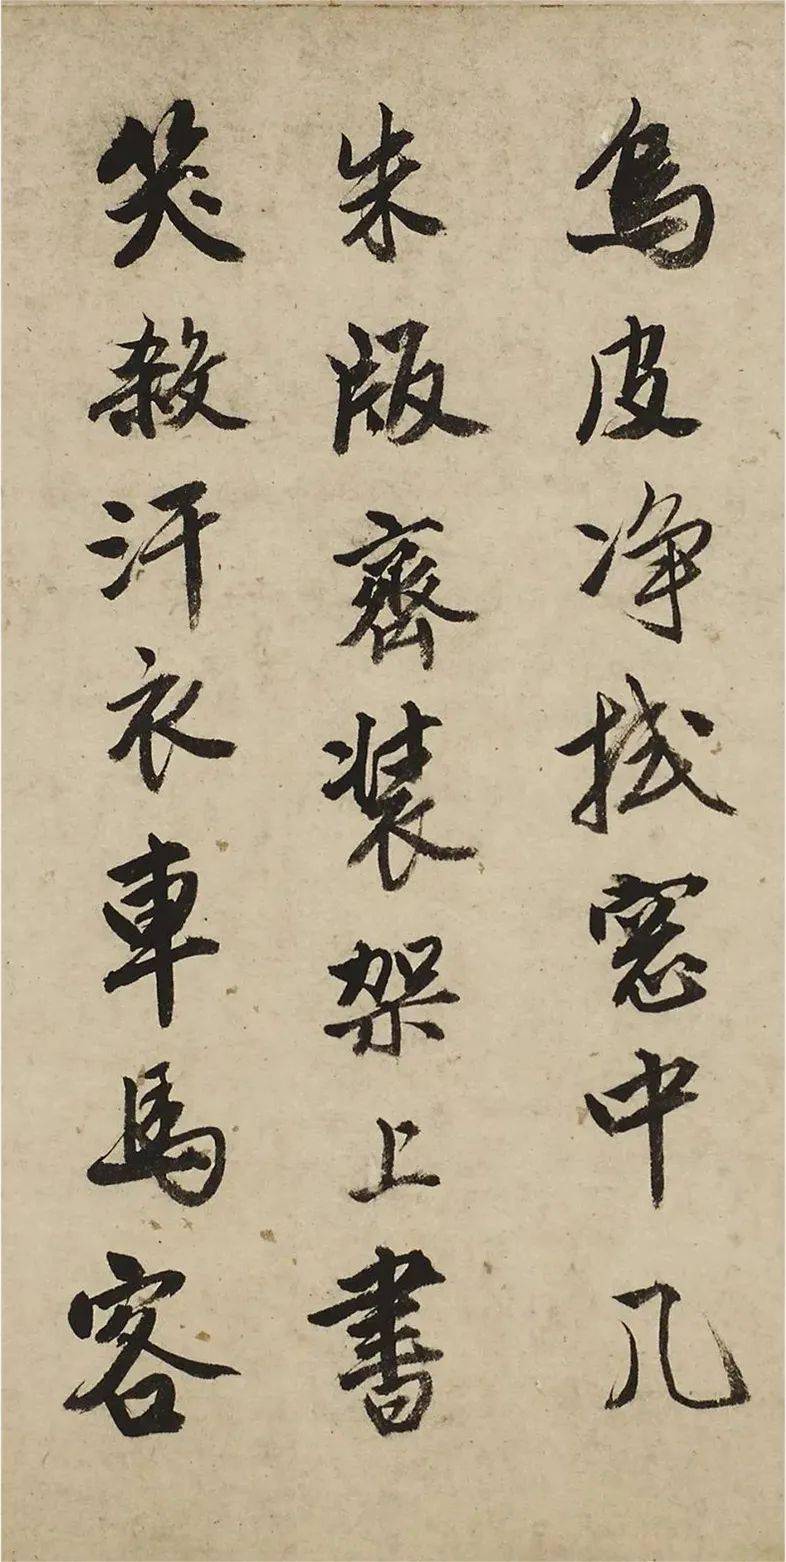 烏皮净拭窓中几
朱版齊装架上書
笑殺汗衣車馬客